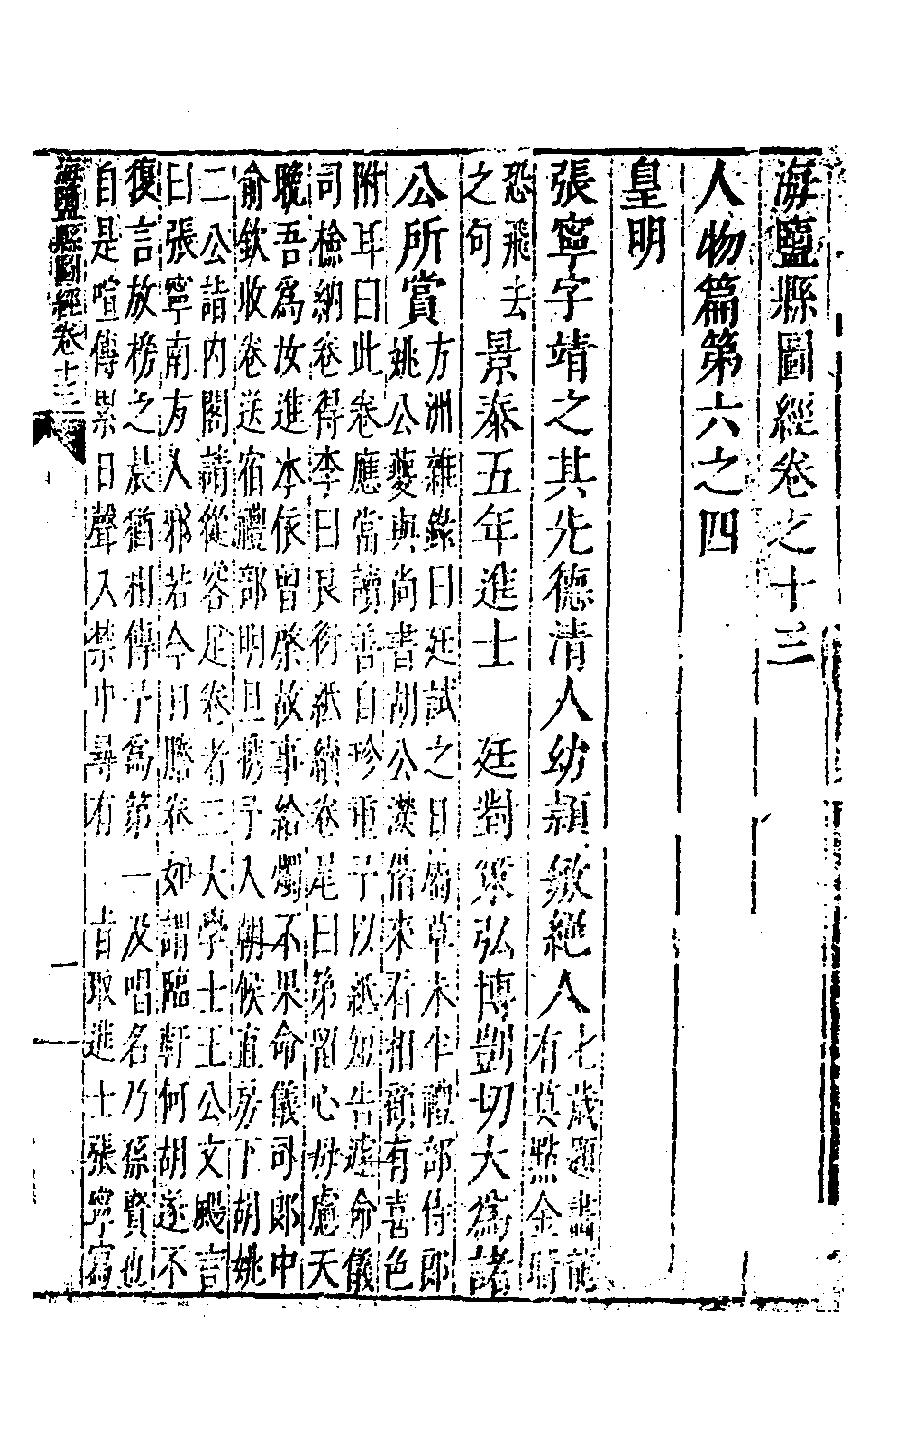 海鹽縣圖經卷之十三
人物篇第六之四
皇明
張寧字靖之其先德清人幼穎敏絕人七歲題畫龍
有莫點金睛
恐飛去
之句
景泰五年進士　廷對策弘博剴切大為諸
公所賞
方洲雜錄曰廷試之日屬草未半禮部侍郎
姚公夔與尚書胡公濙偕來看相顧有喜色
附耳曰此卷應當讀善自珍重予以紙短告遂命儀
司檢納卷得李曰良衍紙續卷尾曰第留心毋慮天
晚吾為汝進本依曾棨故事給燭不果命儀司郎中
俞欽收卷送宿禮部明旦攜予入朝候直房下胡姚
二公詣內閣請從容足卷者三大學士王公文颺言
曰張寧南方人邪若今日謄卷如謂臨軒何胡遂不
復言放榜之晨猶相傳予為第一及唱名乃孫賢也
自是喧傳累日聲入禁中尋有　旨取進士張寧寫
海鹽縣圖經卷十三
一